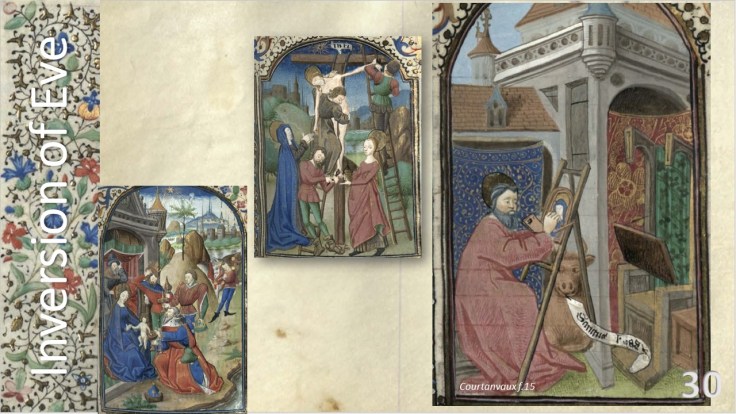 Inversion of Eve
INRI
Courtanvaux f.15
30